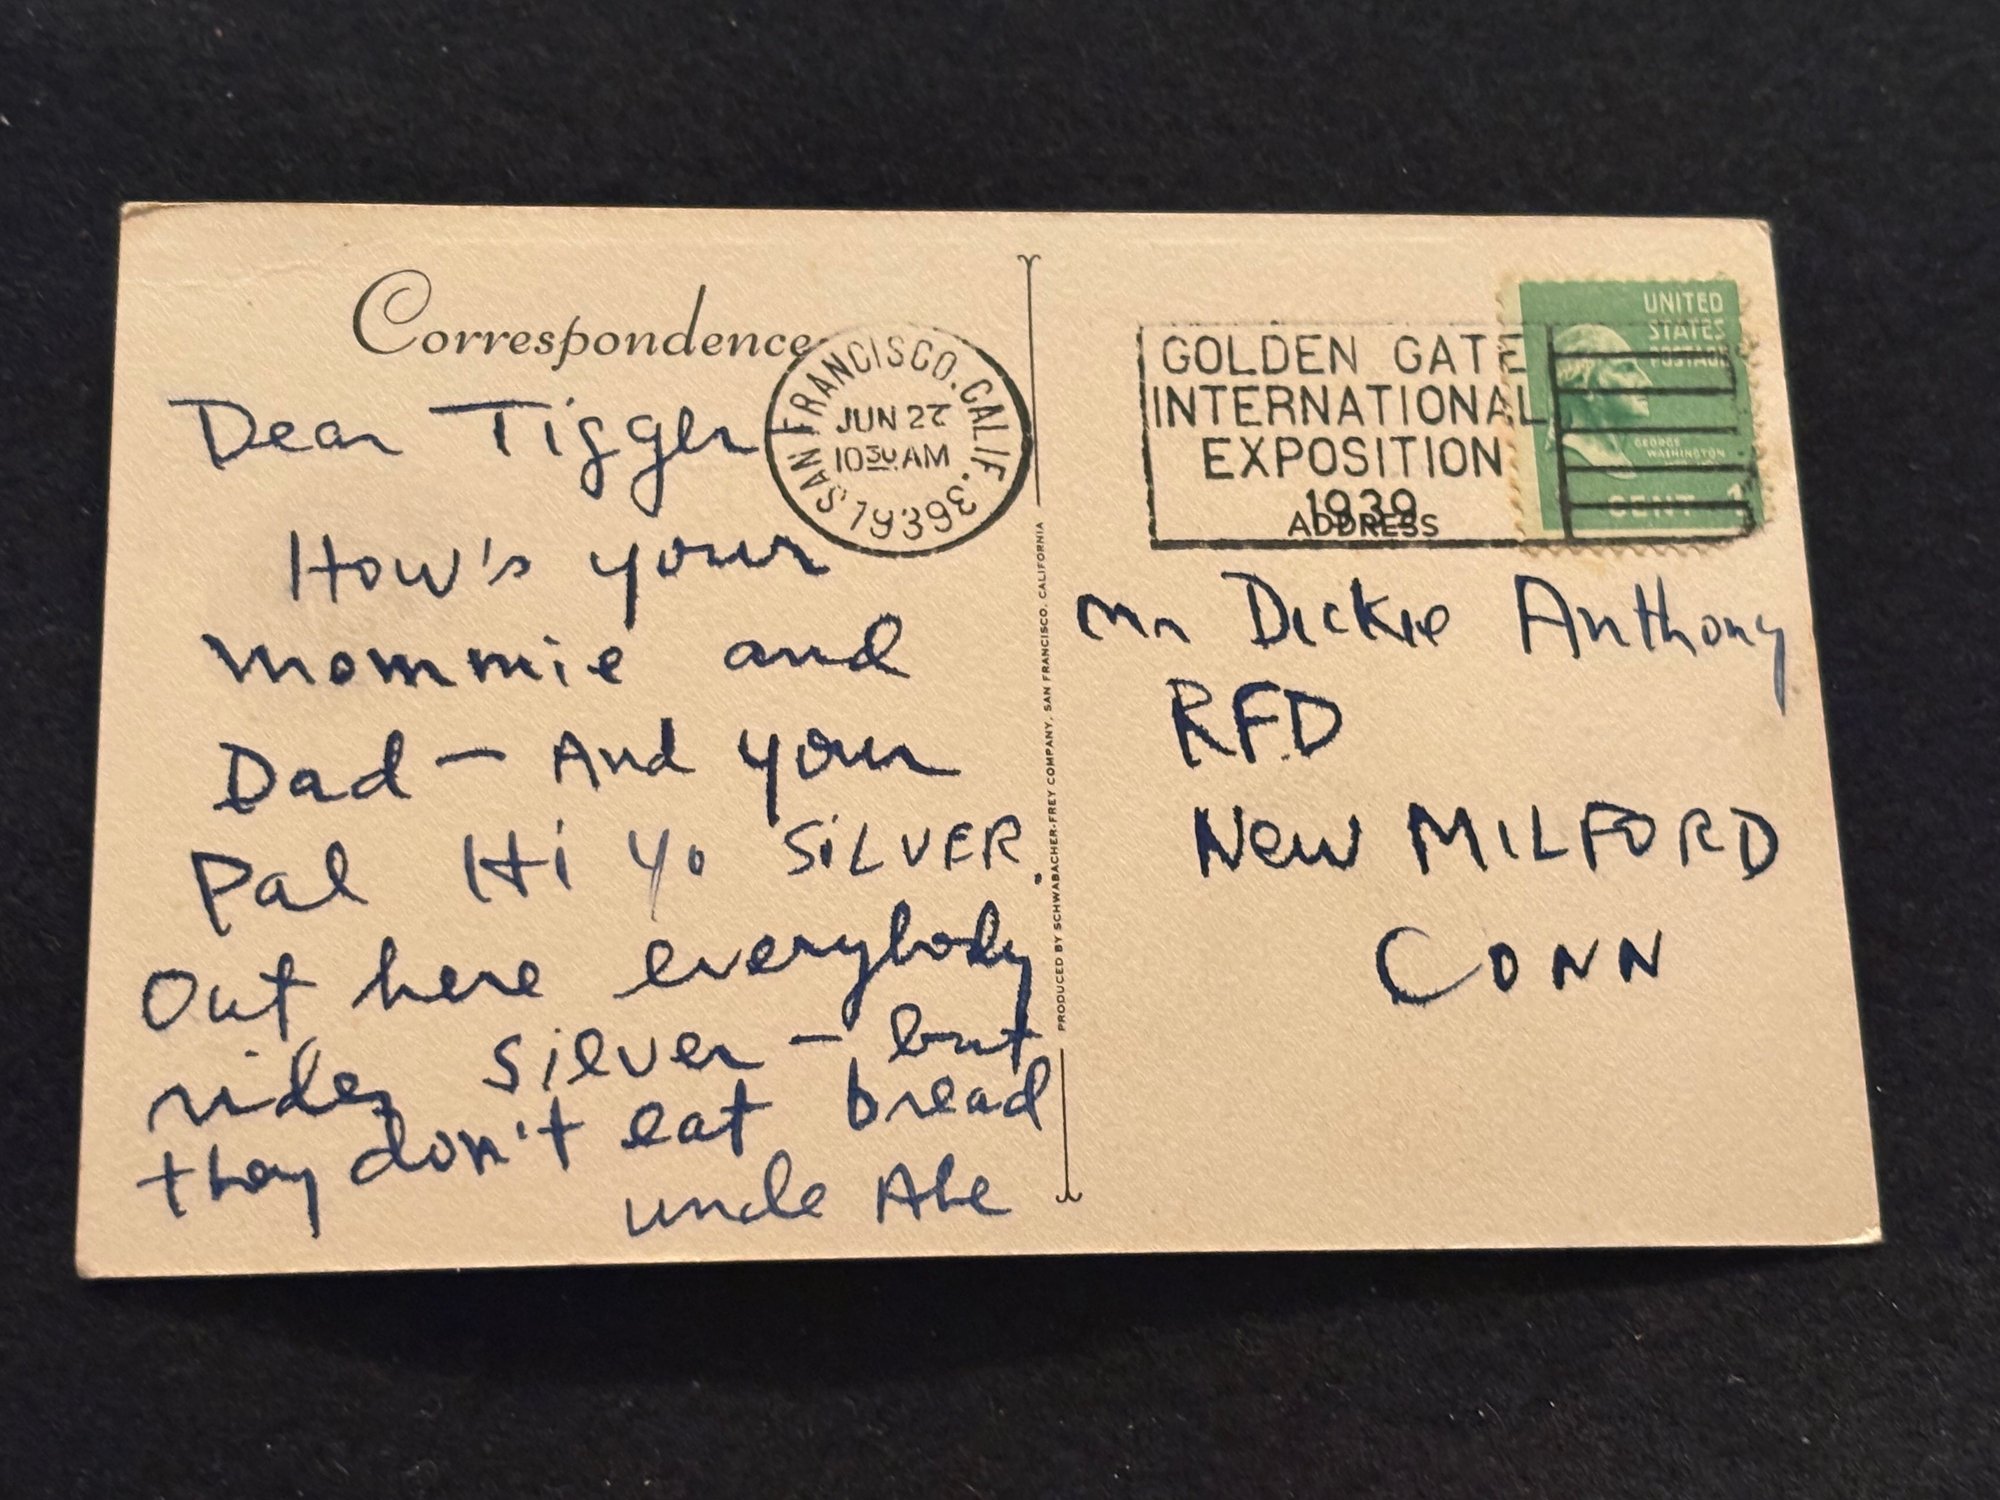 Correspondence
Dear Tigger
How's your
mommie and
Dad — And your
Pal Hi Yo SiLVER
Out here everybody
rides silver — but
they don't eat bread
uncle Abe
SAN FRANCISCO, CALIF. 3
JUN 27
10 30 AM
1939
PRODUCED BY SCHWABACHER-FREY COMPANY, SAN FRANCISCO, CALIFORNIA
GOLDEN GATE
INTERNATIONAL
EXPOSITION
1939
UNITED
STATES
POSTAGE
GEORGE
WASHINGTON
CENT 1
ADDRESS
Mr Dickie Anthony
RFD
New MILFORD
CONN